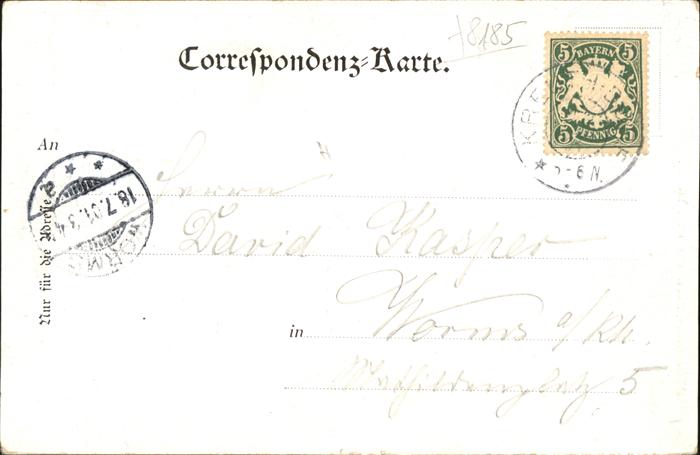 +8185
Correspondenz-Karte.
5 BAYERN 5
5 PFENNIG 5
KRE
5-6 N.
An
Herrn
David Kasper
in Worms a/Rh.
5
Nur für die Adresse
WORMS
18.7.01.3-4